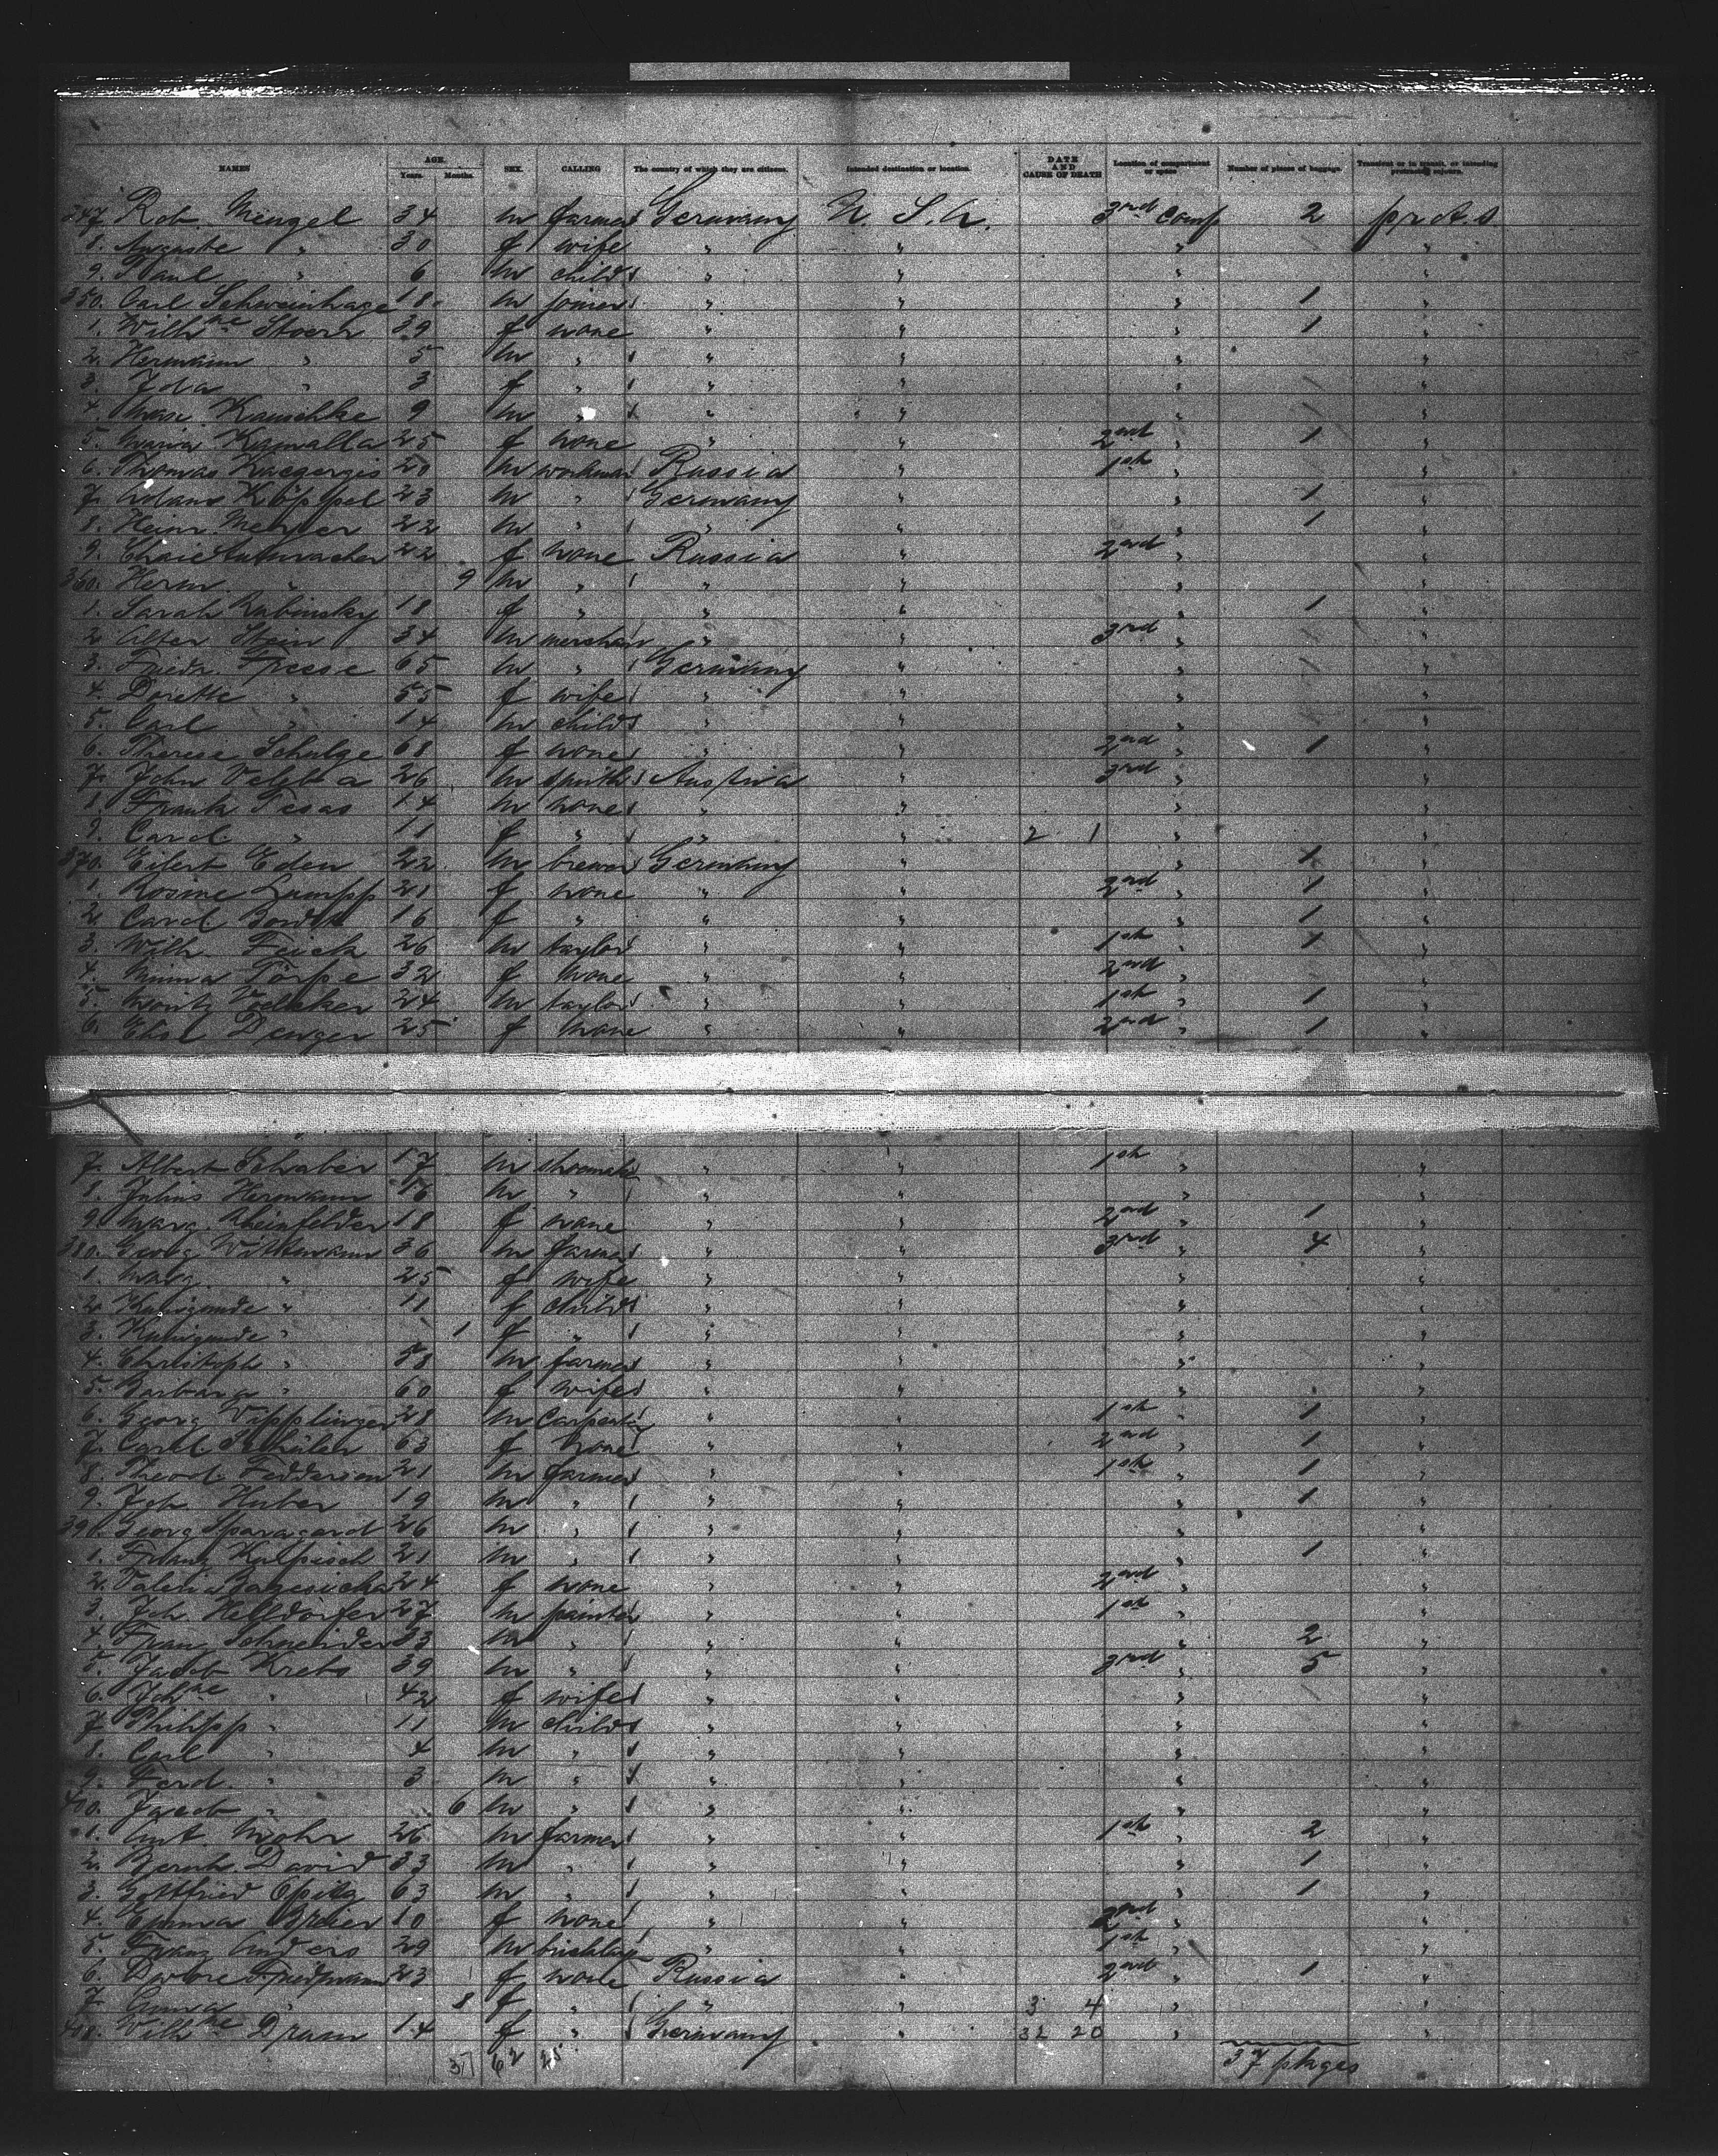 NAMES AGE. Years. Months. SEX. CALLING The country of which they are citizens. Intended destination or location. DATE AND CAUSE OF DEATH Location of compartment or space Number of pieces of baggage. Transient or in transit, or intending protracted sojourn.
347. Rob. Mengel 34 m farmer Germany U. S. A. 3rd Comp 2
8. Auguste " 30 f wife " " " "
9. Paul " 6 m child " " " "
350. Carl Schweinhage 18 m joiner " " " 1 "
1. Wilhne Stoerr 39 f none " " " 1 "
2. Hermann " 5 m " " " " "
3. Ida " 3 f " " " " "
4. Max Kauschke 9 m " " " " "
5. Maria Kawalla 25 f none " " 2nd " 1 "
6. Thomas m workman Russia " 1st " "
7. Adam Köppel 23 m " Germany " " 1 "
8. Heinr. 22 m " " " " 1 "
9. 22 f none Russia " 2nd " "
360. Herm. " 9 m " " " " "
1. Sarah Rabinsky 18 f " " " " 1 "
2. Alter Stein 34 m merchan " " 3rd " "
3. Friedr. Freese 65 m " Germany " " "
4. Dorette " 55 f wife " " " "
5. Carl " 14 m child " " " "
6. Therese Schulze 68 f none " " 2nd " 1 "
7. John 26 m smith Austria " 3rd " "
8. Frank Tesas 14 m none " " " "
9. Carol. " 11 f " " " 2 1 " "
370. Eilert Eden 22 m brewer Germany " " 1 "
1. Rosine Lumpp 21 f none " " 2nd " 1 "
2. Carol. 16 f " " " " 1 "
3. Wilh. Feuch 26 m taylor " " 1st " 1 "
4. Minna Törpe 32 f none " " 2nd " "
5. Moritz 24 m taylor " " 1st " 1 "
6. Elise Denger 25 f none " " 2nd " 1 "
7. Albert Schaber 17 m shoemake " " 1st " "
8. Julius Hermann 16 m " " " " "
9. Marg. Rheinfelder 18 f none " " 2nd " 1 "
380. Georg Wittmann 36 m farmer " " 3rd " 4 "
1. Marg. " 25 f wife " " " "
2. Kunigunde " 11 f child " " " "
3. Kunigunde " 1 f " " " " "
4. Christoph " 58 m farmer " " " "
5. Barbara " 60 f wife " " " "
6. Georg Wipplinger 28 m Carpenter " " 1st " 1 "
7. Carol. Schüler 63 f none " " 2nd " 1 "
8. Theod. Feddersen 21 m farmer " " 1st " 1 "
9. Joh. Huber 19 m " " " " 1 "
390. Georg Sparagard 26 m " " " " "
1. Franz Kulpisch 21 m " " " " 1 "
2. Valeria 24 f none " " 2nd " "
3. Joh. Helldörfer 27 m painter " " 1st " "
4. Franz Schneider 33 m " " " " 2 "
5. Jacob Krebs 39 m " " " 3rd " 5 "
6. Johne " 42 f wife " " " "
7. Philipp " 11 m child " " " "
8. Carl " 4 m " " " " "
9. Ferd. " 3 m " " " " "
400. Jacob " 6 m " " " " "
1. Ant. Mohr 26 m farmer " " 1st " 2 "
2. Bernh. David 33 m " " " " 1 "
3. Gottfried Opitz 63 m " " " " 1 "
4. Emma Breier 10 f none " " 2nd " "
5. Franz Anders 29 m " " 1st " "
6. Dwore Friedmann 23 f none Russia " 2nd " 1 "
7. Anna " 8 f " " " 3 4 " "
408. Wilhne Dramm 14 f " Germany " 32 20 " "
37 62 25 37 pkges